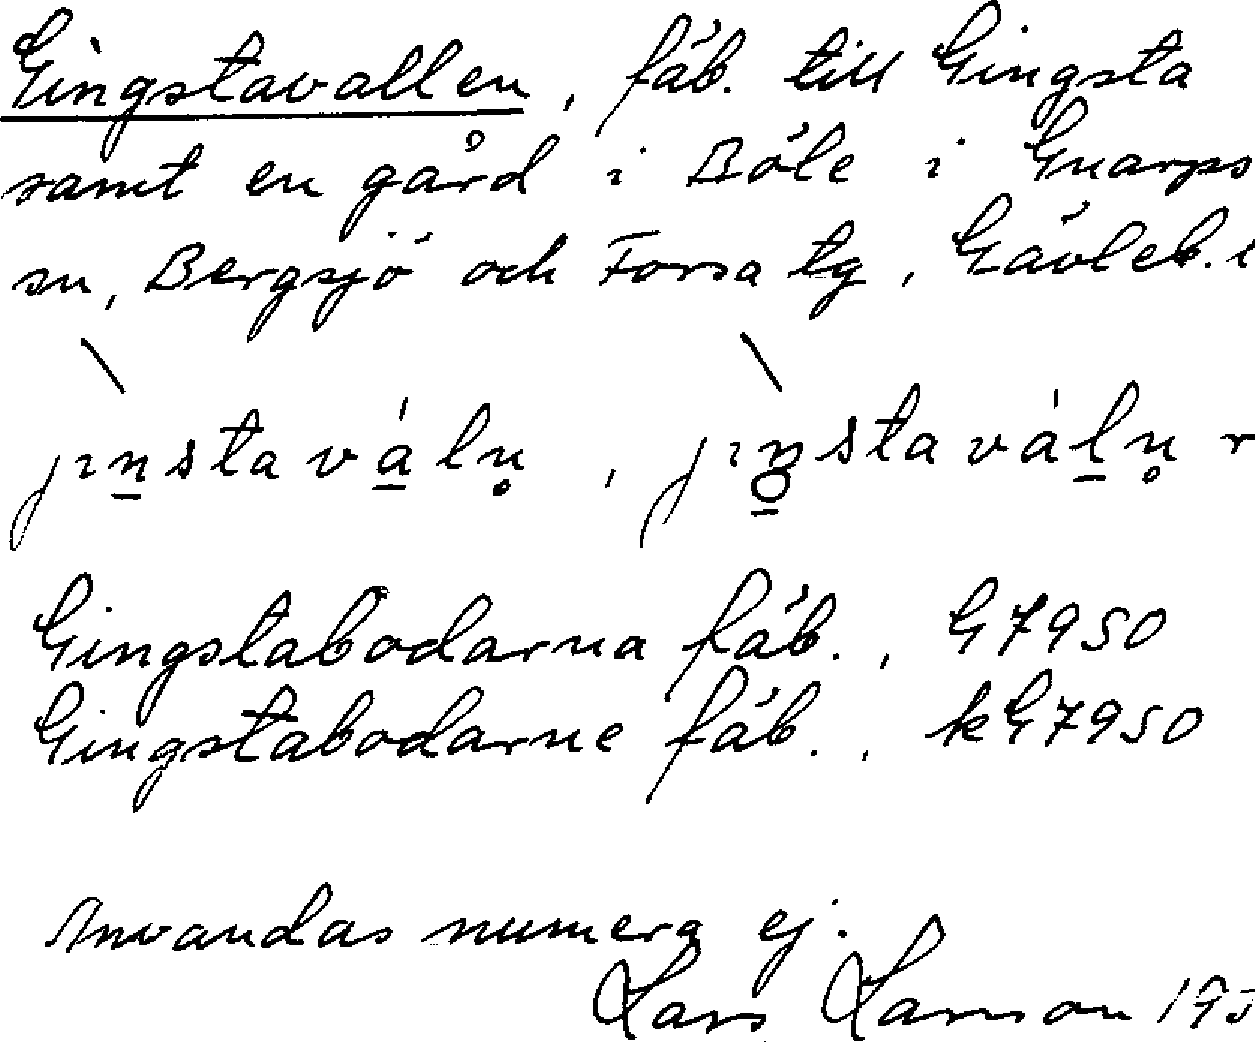 Gingstavallen, fäb. till Gingsta
samt en gård i Böle i Gnarps
sn, Bergsjö och Forsa tg, Gävleb.
Gingstabodarna fäb., G7950
Gingstabodarne fäb., kG7950
Användas numera ej.
Lars Larsson 195